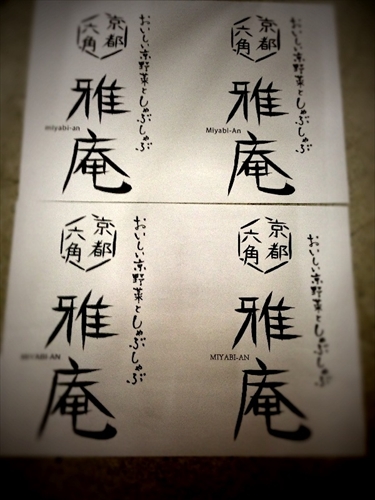 京都
六角
おいしい京野菜としゃぶしゃぶ
雅庵
miyabi-an
京都
六角
おいしい京野菜としゃぶしゃぶ
雅庵
Miyabi-An
京都
六角
おいしい京野菜としゃぶしゃぶ
雅庵
MIYABI-AN
京都
六角
おいしい京野菜としゃぶしゃぶ
雅庵
MIYABI-AN